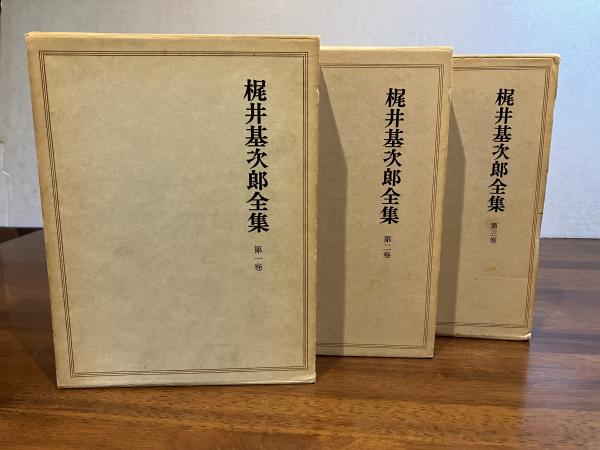 梶井基次郎全集
第一巻
梶井基次郎全集
第二巻
梶井基次郎全集
第三巻